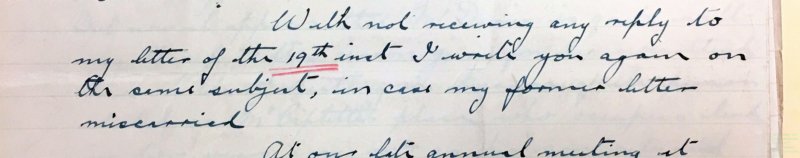 With not receiving any reply to
my letter of the 19th inst I write you again on
the same subject, in case my former letter
miscarried
At our late annual meeting it